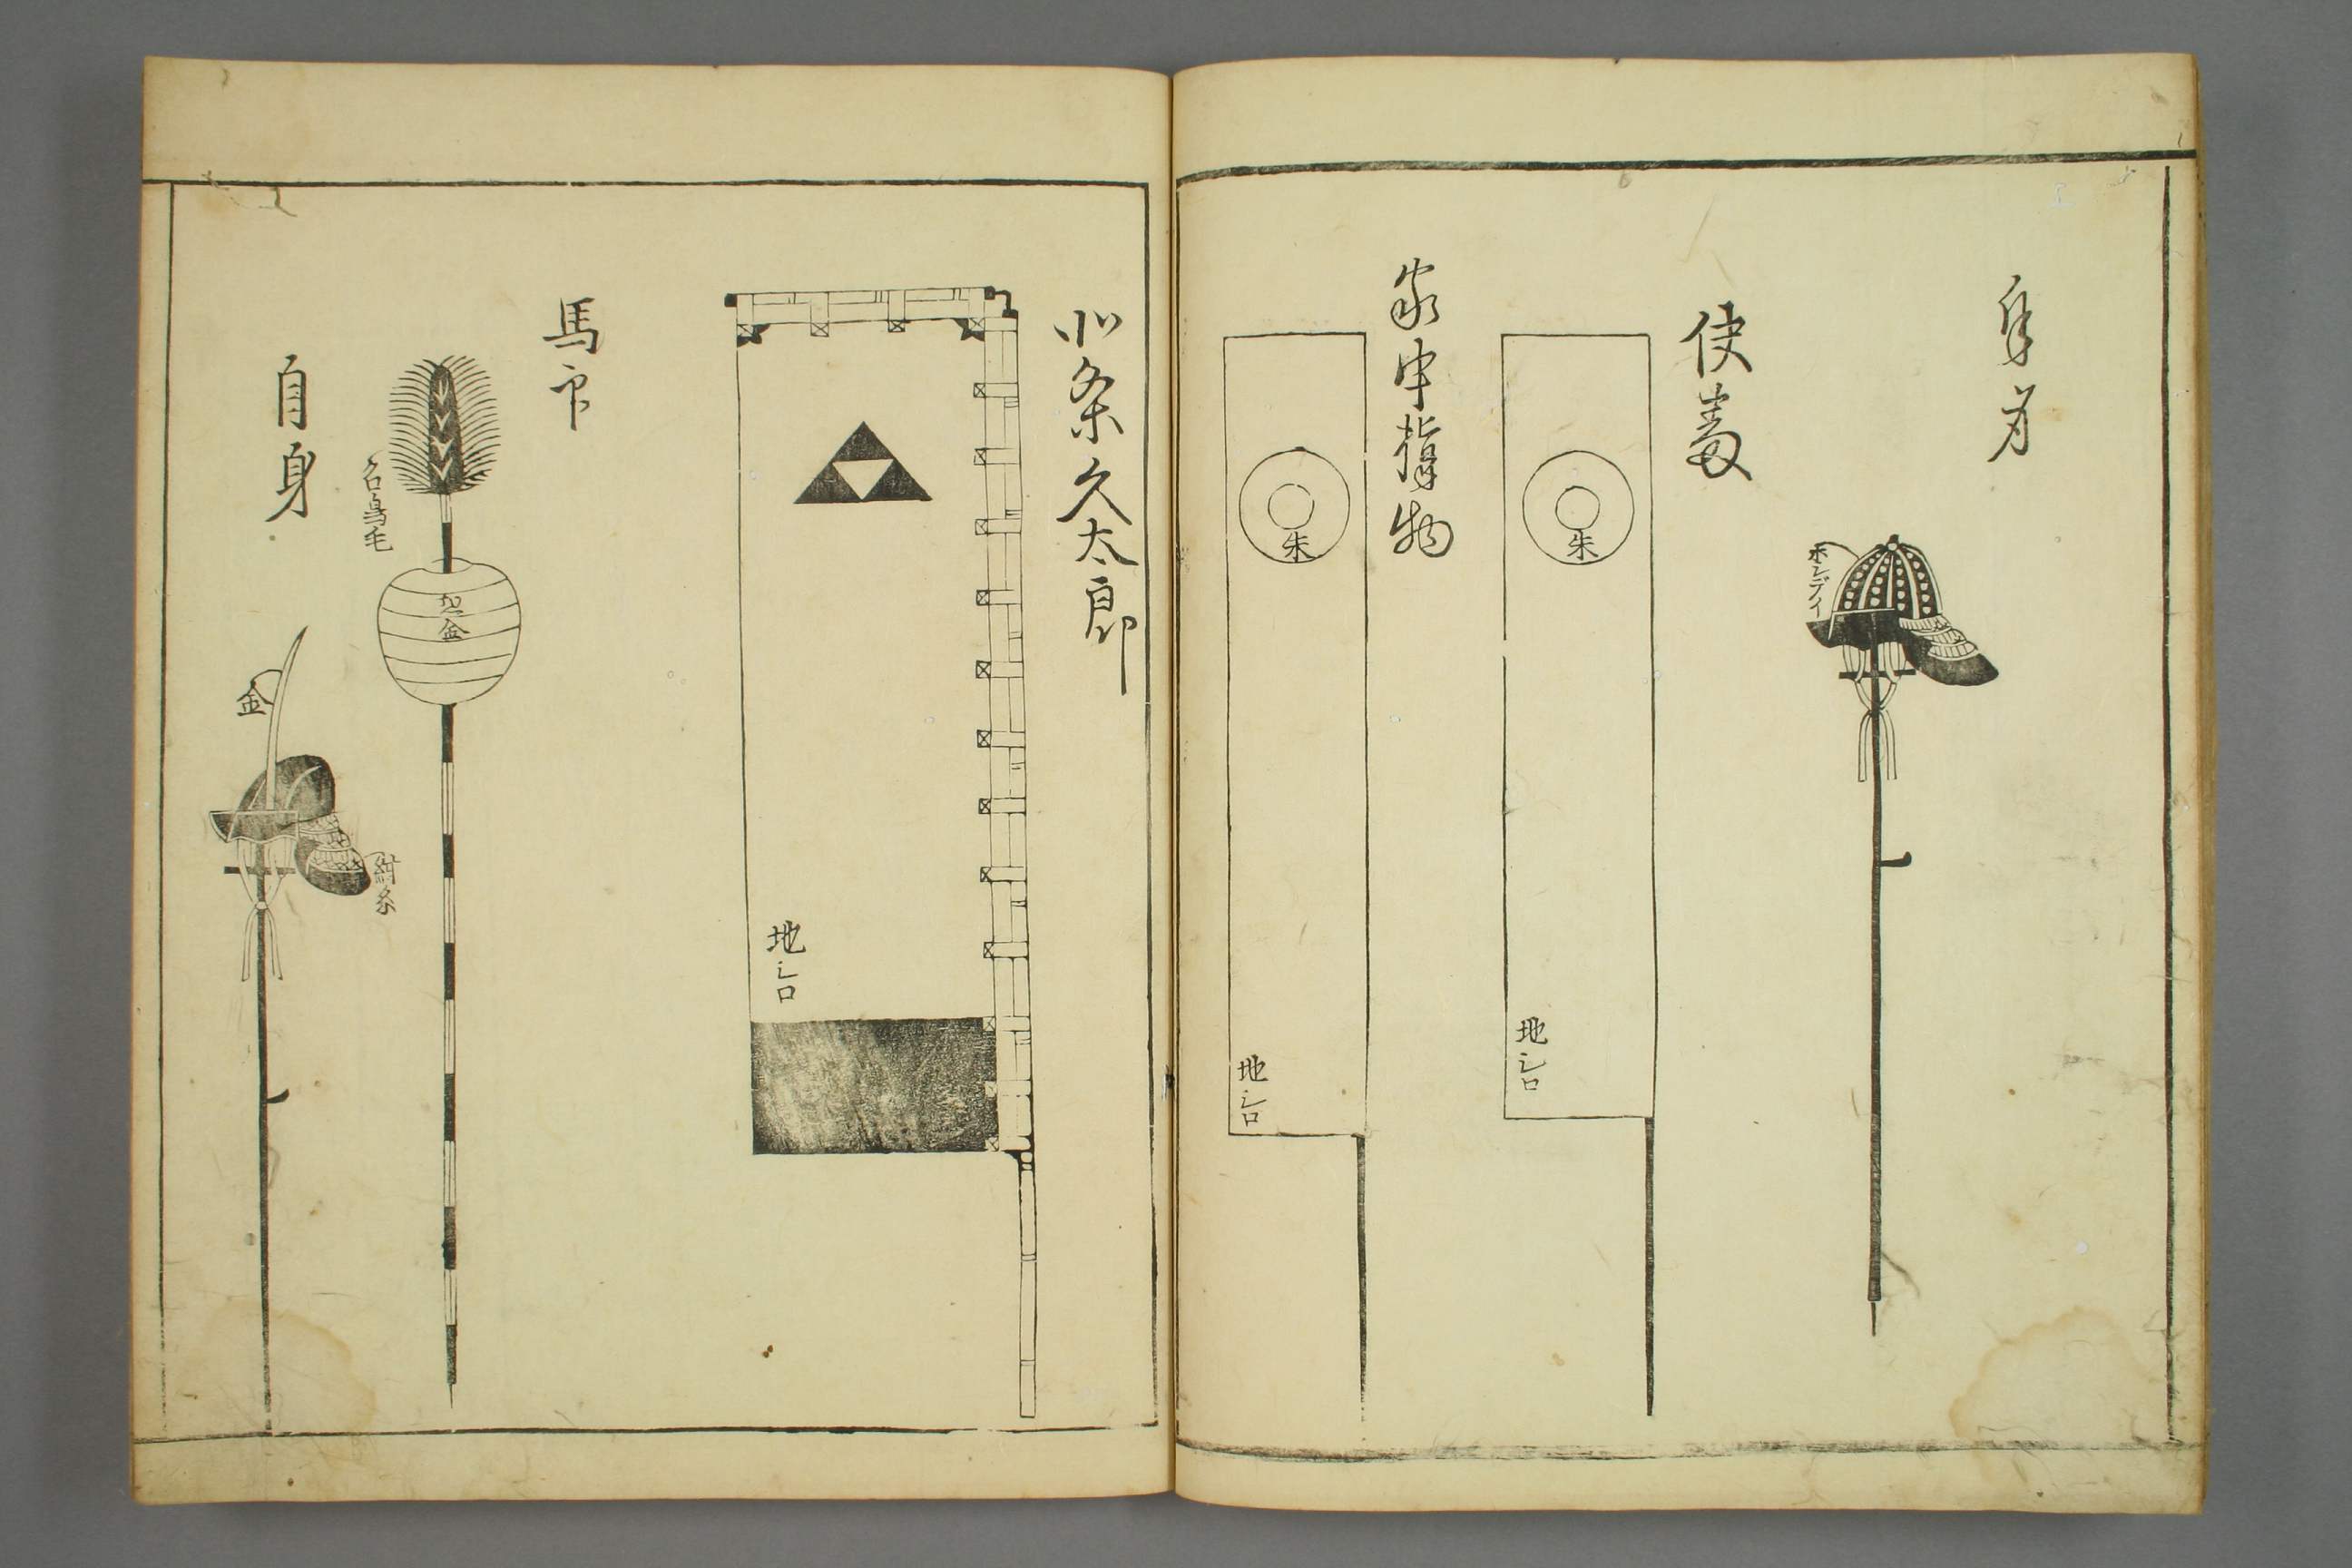 自身
ホンデイ
使番
朱
地シロ
家中指物
朱
地シロ
北条久太郎
地シロ
馬印
白鳥毛
惣金
自身
金
紺糸